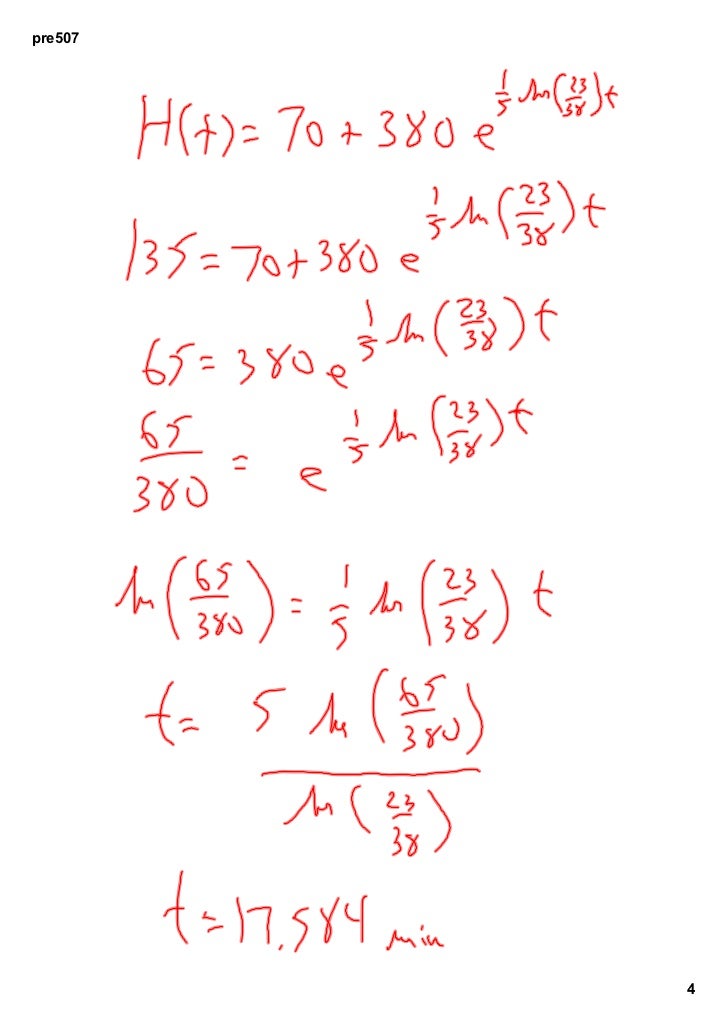 pre507
H(t) = 70 + 380 e^{\frac{1}{5} ln(\frac{23}{38}) t}
135 = 70 + 380 e^{\frac{1}{5} ln(\frac{23}{38}) t}
65 = 380 e^{\frac{1}{5} ln(\frac{23}{38}) t}
\frac{65}{380} = e^{\frac{1}{5} ln(\frac{23}{38}) t}
ln(\frac{65}{380}) = \frac{1}{5} ln(\frac{23}{38}) t
t = \frac{5 ln(\frac{65}{380})}{ln(\frac{23}{38})}
t = 17.584 min
4